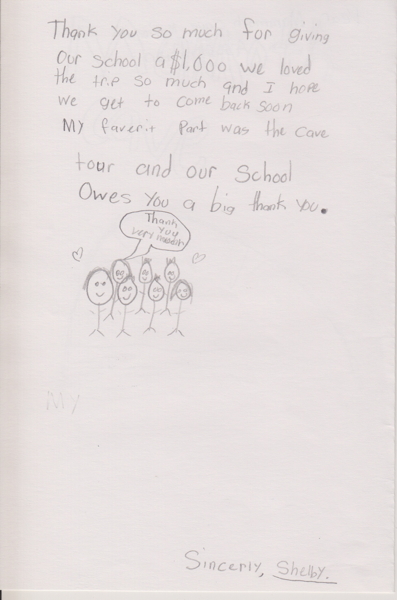 Thank you so much for giving
Our school a $1,000 we loved
the trip so much and I hope
we get to come back soon
My faverit Part was the Cave
tour and our School
Owes You a big thank you.
Thank
you
very
My
Sincerly, Shelby.